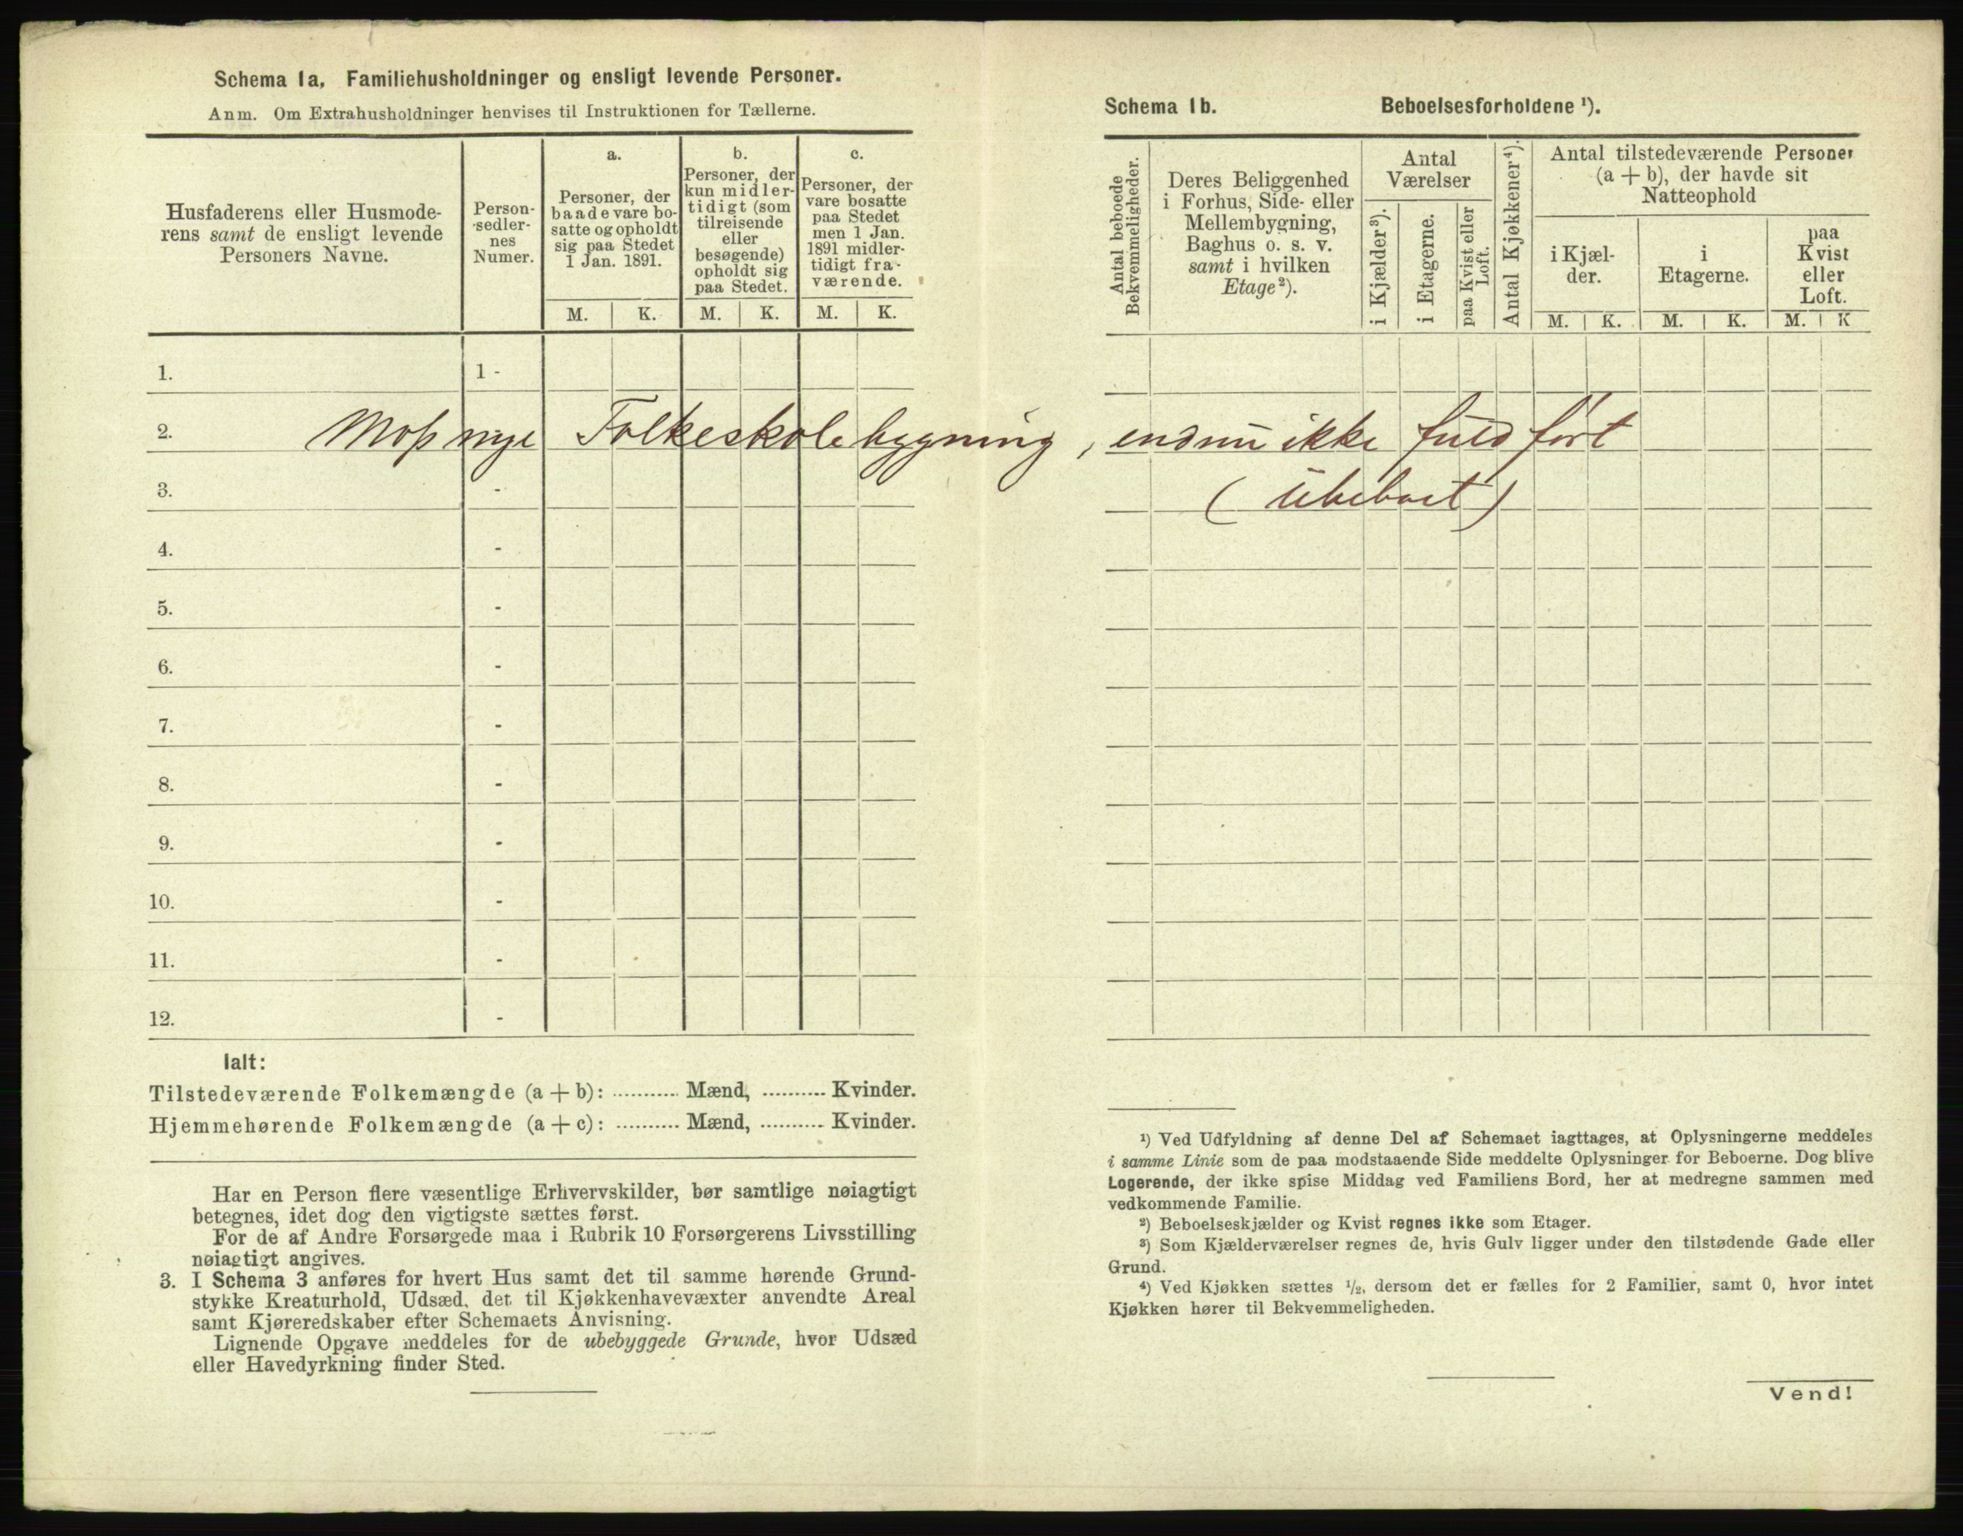 Schema 1a. Familiehusholdninger og ensligt levende Personer.
Anm. Om Extrahusholdninger henvises til Instruktionen for Tællerne.
Husfaderens eller Husmode-
rens samt de ensligt levende
Personers Navne.
Person-
sedler-
nes
Numer.
a.
Personer, der
baade vare bo-
satte og opholdt
sig paa Stedet
1 Jan. 1891.
b.
Personer, der
kun midler-
tidigt (som
tilreisende
eller
besøgende)
opholdt sig
paa Stedet.
c.
Personer, der
vare bosatte
paa Stedet
men 1 Jan.
1891 midler-
tidigt fra-
værende.
M. K. M. K. M. K.
1. 1 -
2. Moss nye Folkeskolebygning, endnu ikke fuldført
3. - (Ubeboet)
4. -
5. -
6. -
7. -
8. -
9. -
10. -
11. -
12. -
Ialt:
Tilstedeværende Folkemængde (a + b): .......... Mænd, .......... Kvinder.
Hjemmehørende Folkemængde (a + c): .......... Mænd, .......... Kvinder.
Har en Person flere væsentlige Erhvervskilder, bør samtlige nøiagtigt
betegnes, idet dog den vigtigste sættes først.
For de af Andre Forsørgede maa i Rubrik 10 Forsørgerens Livsstilling
nøiagtigt angives.
3. I Schema 3 anføres for hvert Hus samt det til samme hørende Grund-
stykke Kreaturhold, Udsæd, det til Kjøkkenhavevæxter anvendte Areal
samt Kjøreredskaber efter Schemaets Anvisning.
Lignende Opgave meddeles for de ubebyggede Grunde, hvor Udsæd
eller Havedyrkning finder Sted.
Schema 1b. Beboelsesforholdene ¹).
Antal beboede
Bekvemmeligheder.
Deres Beliggenhed
i Forhus, Side- eller
Mellembygning,
Baghus o. s. v.
samt i hvilken
Etage²).
Antal
Værelser
i Kjælder³).
i Etagerne.
paa Kvist eller
Loft.
Antal Kjøkkener⁴).
Antal tilstedeværende Personer
(a + b), der havde sit
Natteophold
i Kjæl-
der.
i
Etagerne.
paa
Kvist
eller
Loft.
M. K. M. K. M. K
¹) Ved Udfyldning af denne Del af Schemaet iagttages, at Oplysningerne meddeles
i samme Linie som de paa modstaaende Side meddelte Oplysninger for Beboerne. Dog blive
Logerende, der ikke spise Middag ved Familiens Bord, her at medregne sammen med
vedkommende Familie.
²) Beboelseskjælder og Kvist regnes ikke som Etager.
³) Som Kjælderværelser regnes de, hvis Gulv ligger under den tilstødende Gade eller
Grund.
⁴) Ved Kjøkken sættes ½, dersom det er fælles for 2 Familier, samt 0, hvor intet
Kjøkken hører til Bekvemmeligheden.
Vend!